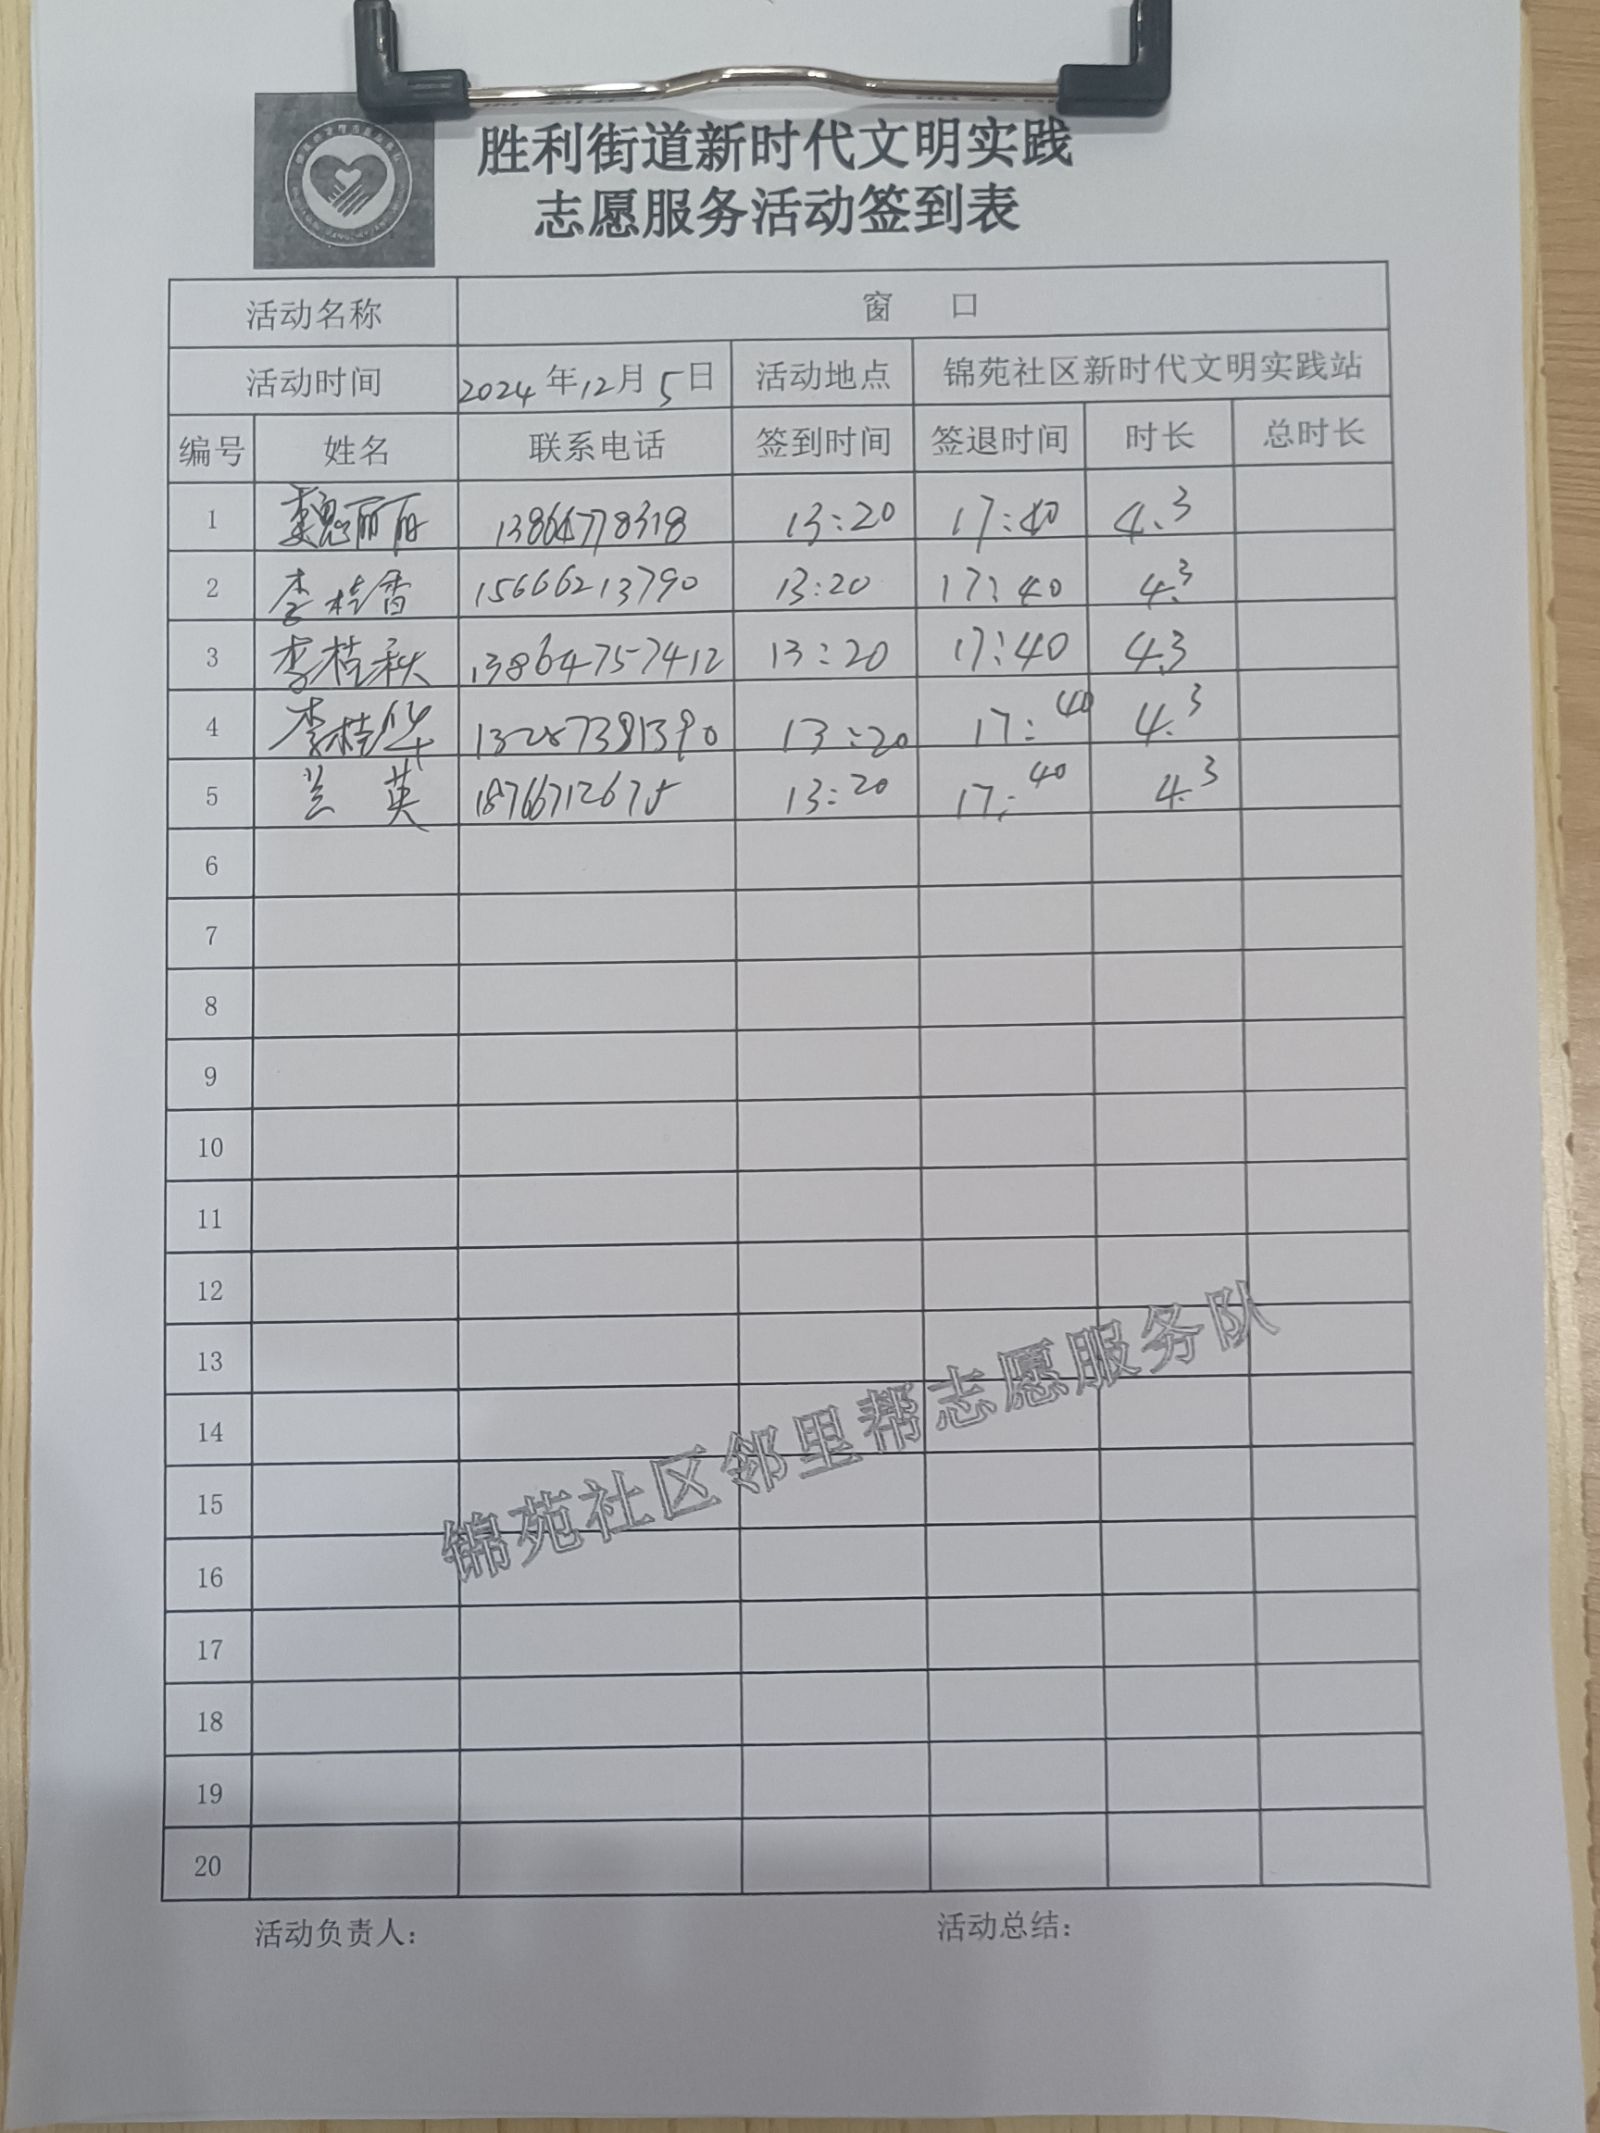 胜利街道新时代文明实践
志愿服务活动签到表
活动名称 窗 口
活动时间 2024年12月5日 活动地点 锦苑社区新时代文明实践站
编号 姓名 联系电话 签到时间 签退时间 时长 总时长
1 魏丽丽 13864778318 13:20 17:40 4.3
2 李桂香 15666213790 13:20 17:40 4.3
3 李桂秋 13864757412 13:20 17:40 4.3
4 李桂华 13287391390 13:20 17:40 4.3
5 兰 英 18766712675 13:20 17:40 4.3
6
7
8
9
10
11
12
13
14
15
16
17
18
19
20
锦苑社区邻里帮志愿服务队
活动负责人: 活动总结: